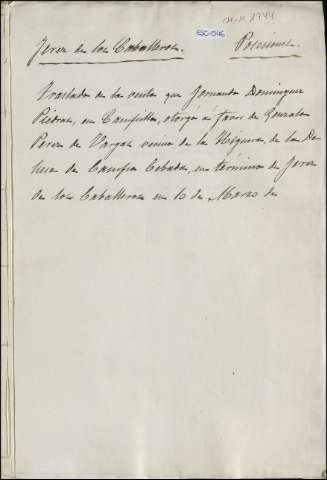 ESC-046
Jerez de los Caballeros. Posesiones.
Traslado de la venta que Fernando Dominguez
Piedras, en Campillo, otorgó á favor de Gonzalo
Perez de Vargas vecino de la Higuera, de la De
hesa de Campos Cebados, en término de Jerez
de los Caballeros en 10 de Marzo de